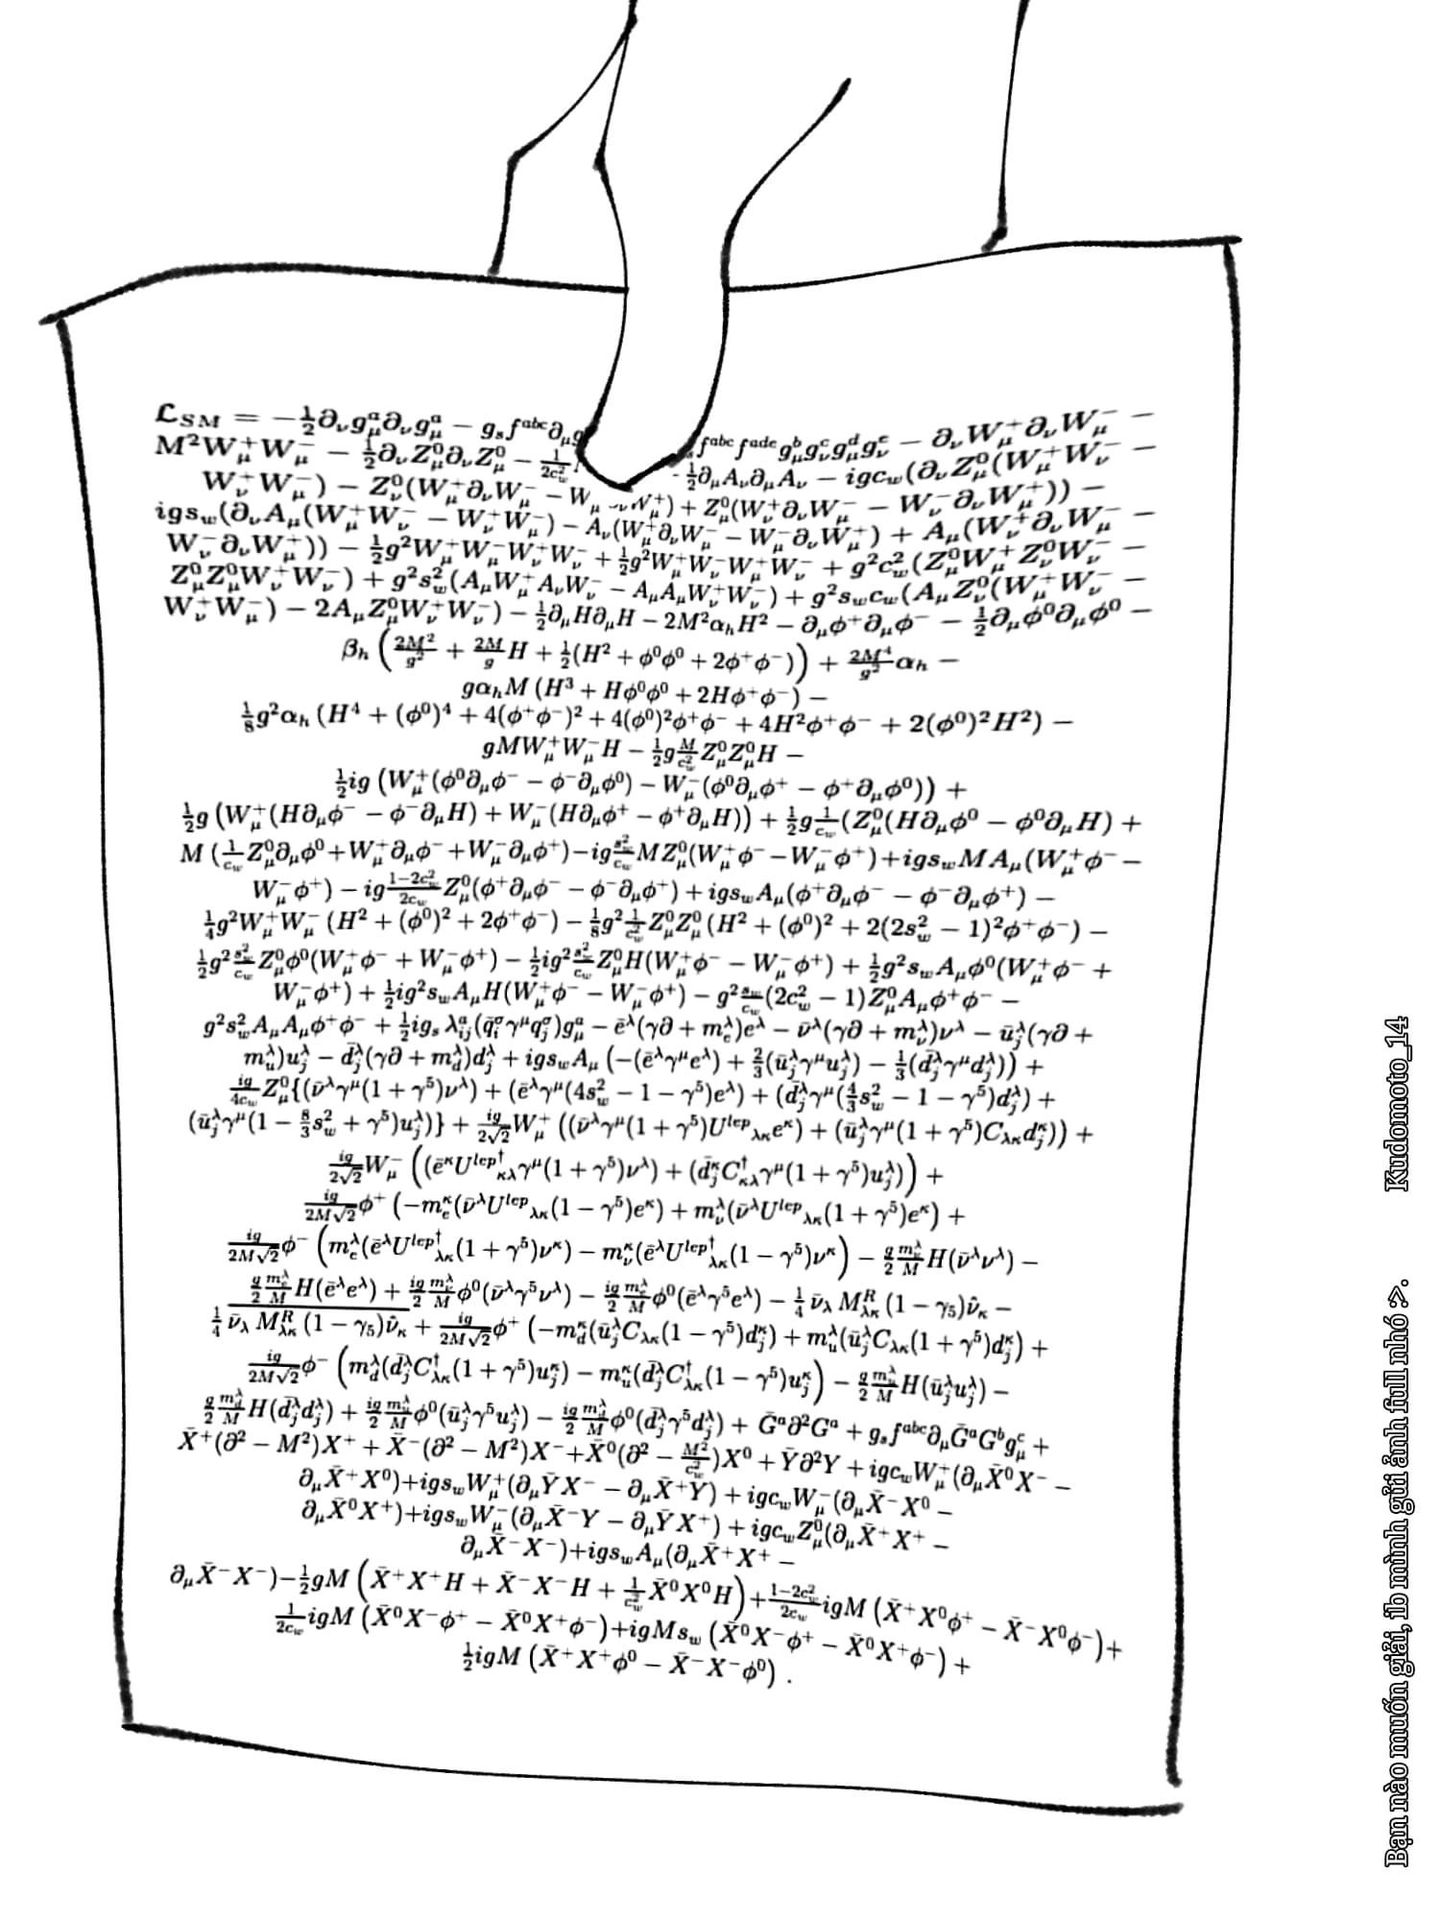 ℒ_SM = −½∂_νg^a_μ∂_νg^a_μ − g_sf^{abc}∂_μg f^{abc}f^{ade}g^b_μg^c_νg^d_μg^e_ν − ∂_νW^+_μ∂_νW^-_μ −
M²W^+_μW^-_μ − ½∂_νZ^0_μ∂_νZ^0_μ − 1/(2c²_w) ½∂_μA_ν∂_μA_ν − igc_w(∂_νZ^0_μ(W^+_μW^-_ν −
W^+_νW^-_μ) − Z^0_ν(W^+_μ∂_νW^-_μ − W^-_μ∂_νW^+_μ) + Z^0_μ(W^+_ν∂_νW^-_μ − W^-_ν∂_νW^+_μ)) −
igs_w(∂_νA_μ(W^+_μW^-_ν − W^+_νW^-_μ) − A_ν(W^+_μ∂_νW^-_μ − W^-_μ∂_νW^+_μ) + A_μ(W^+_ν∂_νW^-_μ −
W^-_ν∂_νW^+_μ)) − ½g²W^+_μW^-_μW^+_νW^-_ν + ½g²W^+_μW^-_νW^+_μW^-_ν + g²c²_w(Z^0_μW^+_μZ^0_νW^-_ν −
Z^0_μZ^0_μW^+_νW^-_ν) + g²s²_w(A_μW^+_μA_νW^-_ν − A_μA_μW^+_νW^-_ν) + g²s_wc_w(A_μZ^0_ν(W^+_μW^-_ν −
W^+_νW^-_μ) − 2A_μZ^0_μW^+_νW^-_ν) − ½∂_μH∂_μH − 2M²α_hH² − ∂_μϕ^+∂_μϕ^- − ½∂_μϕ^0∂_μϕ^0 −
β_h(2M²/g² + 2M/g H + ½(H² + ϕ^0ϕ^0 + 2ϕ^+ϕ^-)) + 2M⁴/g² α_h −
gα_hM(H³ + Hϕ^0ϕ^0 + 2Hϕ^+ϕ^-) −
⅛g²α_h(H⁴ + (ϕ^0)⁴ + 4(ϕ^+ϕ^-)² + 4(ϕ^0)²ϕ^+ϕ^- + 4H²ϕ^+ϕ^- + 2(ϕ^0)²H²) −
gMW^+_μW^-_μH − ½g M/c²_w Z^0_μZ^0_μH −
½ig(W^+_μ(ϕ^0∂_μϕ^- − ϕ^-∂_μϕ^0) − W^-_μ(ϕ^0∂_μϕ^+ − ϕ^+∂_μϕ^0)) +
½g(W^+_μ(H∂_μϕ^- − ϕ^-∂_μH) + W^-_μ(H∂_μϕ^+ − ϕ^+∂_μH)) + ½g 1/c_w(Z^0_μ(H∂_μϕ^0 − ϕ^0∂_μH) +
M(1/c_w Z^0_μ∂_μϕ^0+W^+_μ∂_μϕ^-+W^-_μ∂_μϕ^+)−ig s²_w/c_w MZ^0_μ(W^+_μϕ^-−W^-_μϕ^+)+igs_wMA_μ(W^+_μϕ^-−
W^-_μϕ^+) − ig (1−2c²_w)/(2c_w) Z^0_μ(ϕ^+∂_μϕ^- − ϕ^-∂_μϕ^+) + igs_wA_μ(ϕ^+∂_μϕ^- − ϕ^-∂_μϕ^+) −
¼g²W^+_μW^-_μ(H² + (ϕ^0)² + 2ϕ^+ϕ^-) − ⅛g² 1/c²_w Z^0_μZ^0_μ(H² + (ϕ^0)² + 2(2s²_w − 1)²ϕ^+ϕ^-) −
½g² s²_w/c_w Z^0_μϕ^0(W^+_μϕ^- + W^-_μϕ^+) − ½ig² s²_w/c_w Z^0_μH(W^+_μϕ^- − W^-_μϕ^+) + ½g²s_wA_μϕ^0(W^+_μϕ^- +
W^-_μϕ^+) + ½ig²s_wA_μH(W^+_μϕ^- − W^-_μϕ^+) − g² s_w/c_w(2c²_w − 1)Z^0_μA_μϕ^+ϕ^- −
g²s²_wA_μA_μϕ^+ϕ^- + ½ig_s λ^a_{ij}(q̄^σ_iγ^μq^σ_j)g^a_μ − ē^λ(γ∂ + m^λ_e)e^λ − ν̄^λ(γ∂ + m^λ_ν)ν^λ − ū^λ_j(γ∂ +
m^λ_u)u^λ_j − d̄^λ_j(γ∂ + m^λ_d)d^λ_j + igs_wA_μ(−(ē^λγ^μe^λ) + ⅔(ū^λ_jγ^μu^λ_j) − ⅓(d̄^λ_jγ^μd^λ_j)) +
ig/(4c_w) Z^0_μ{(ν̄^λγ^μ(1 + γ⁵)ν^λ) + (ē^λγ^μ(4s²_w − 1 − γ⁵)e^λ) + (d̄^λ_jγ^μ(4/3 s²_w − 1 − γ⁵)d^λ_j) +
(ū^λ_jγ^μ(1 − 8/3 s²_w + γ⁵)u^λ_j)} + ig/(2√2) W^+_μ((ν̄^λγ^μ(1 + γ⁵)U^{lep}_{λκ}e^κ) + (ū^λ_jγ^μ(1 + γ⁵)C_{λκ}d^κ_j)) +
ig/(2√2) W^-_μ((ē^κU^{lep†}_{κλ}γ^μ(1 + γ⁵)ν^λ) + (d̄^κ_jC^†_{κλ}γ^μ(1 + γ⁵)u^λ_j)) +
ig/(2M√2) ϕ^+(−m^κ_e(ν̄^λU^{lep}_{λκ}(1 − γ⁵)e^κ) + m^λ_ν(ν̄^λU^{lep}_{λκ}(1 + γ⁵)e^κ) +
ig/(2M√2) ϕ^-(m^λ_e(ē^λU^{lep†}_{λκ}(1 + γ⁵)ν^κ) − m^κ_ν(ē^λU^{lep†}_{λκ}(1 − γ⁵)ν^κ) − g/2 m^λ_ν/M H(ν̄^λν^λ) −
g/2 m^λ_e/M H(ē^λe^λ) + ig/2 m^λ_ν/M ϕ^0(ν̄^λγ⁵ν^λ) − ig/2 m^λ_e/M ϕ^0(ē^λγ⁵e^λ) − ¼ ν̄_λ M^R_{λκ}(1 − γ_5)ν̂_κ −
¼ ν̄_λ M^R_{λκ}(1 − γ_5)ν̂_κ + ig/(2M√2) ϕ^+(−m^κ_d(ū^λ_jC_{λκ}(1 − γ⁵)d^κ_j) + m^λ_u(ū^λ_jC_{λκ}(1 + γ⁵)d^κ_j) +
ig/(2M√2) ϕ^-(m^λ_d(d̄^λ_jC^†_{λκ}(1 + γ⁵)u^κ_j) − m^κ_u(d̄^λ_jC^†_{λκ}(1 − γ⁵)u^κ_j) − g/2 m^λ_u/M H(ū^λ_ju^λ_j) −
g/2 m^λ_d/M H(d̄^λ_jd^λ_j) + ig/2 m^λ_u/M ϕ^0(ū^λ_jγ⁵u^λ_j) − ig/2 m^λ_d/M ϕ^0(d̄^λ_jγ⁵d^λ_j) + Ḡ^a∂²G^a + g_sf^{abc}∂_μḠ^aG^bg^c_μ +
X̄^+(∂² − M²)X^+ + X̄^-(∂² − M²)X^-+X̄^0(∂² − M²/c²_w)X^0 + Ȳ∂²Y + igc_wW^+_μ(∂_μX̄^0X^- −
∂_μX̄^+X^0)+igs_wW^+_μ(∂_μȲX^- − ∂_μX̄^+Y) + igc_wW^-_μ(∂_μX̄^-X^0 −
∂_μX̄^0X^+)+igs_wW^-_μ(∂_μX̄^-Y − ∂_μȲX^+) + igc_wZ^0_μ(∂_μX̄^+X^+ −
∂_μX̄^-X^-)+igs_wA_μ(∂_μX̄^+X^+ −
∂_μX̄^-X^-)−½gM(X̄^+X^+H + X̄^-X^-H + 1/c²_w X̄^0X^0H)+(1−2c²_w)/(2c_w) igM(X̄^+X^0ϕ^+ − X̄^-X^0ϕ^-)+
1/(2c_w) igM(X̄^0X^-ϕ^+ − X̄^0X^+ϕ^-)+igMs_w(X̄^0X^-ϕ^+ − X̄^0X^+ϕ^-) +
½igM(X̄^+X^+ϕ^0 − X̄^-X^-ϕ^0) .
Bạn nào muốn giải, ib mình gửi ảnh full nhó :>. Kudomoto_14